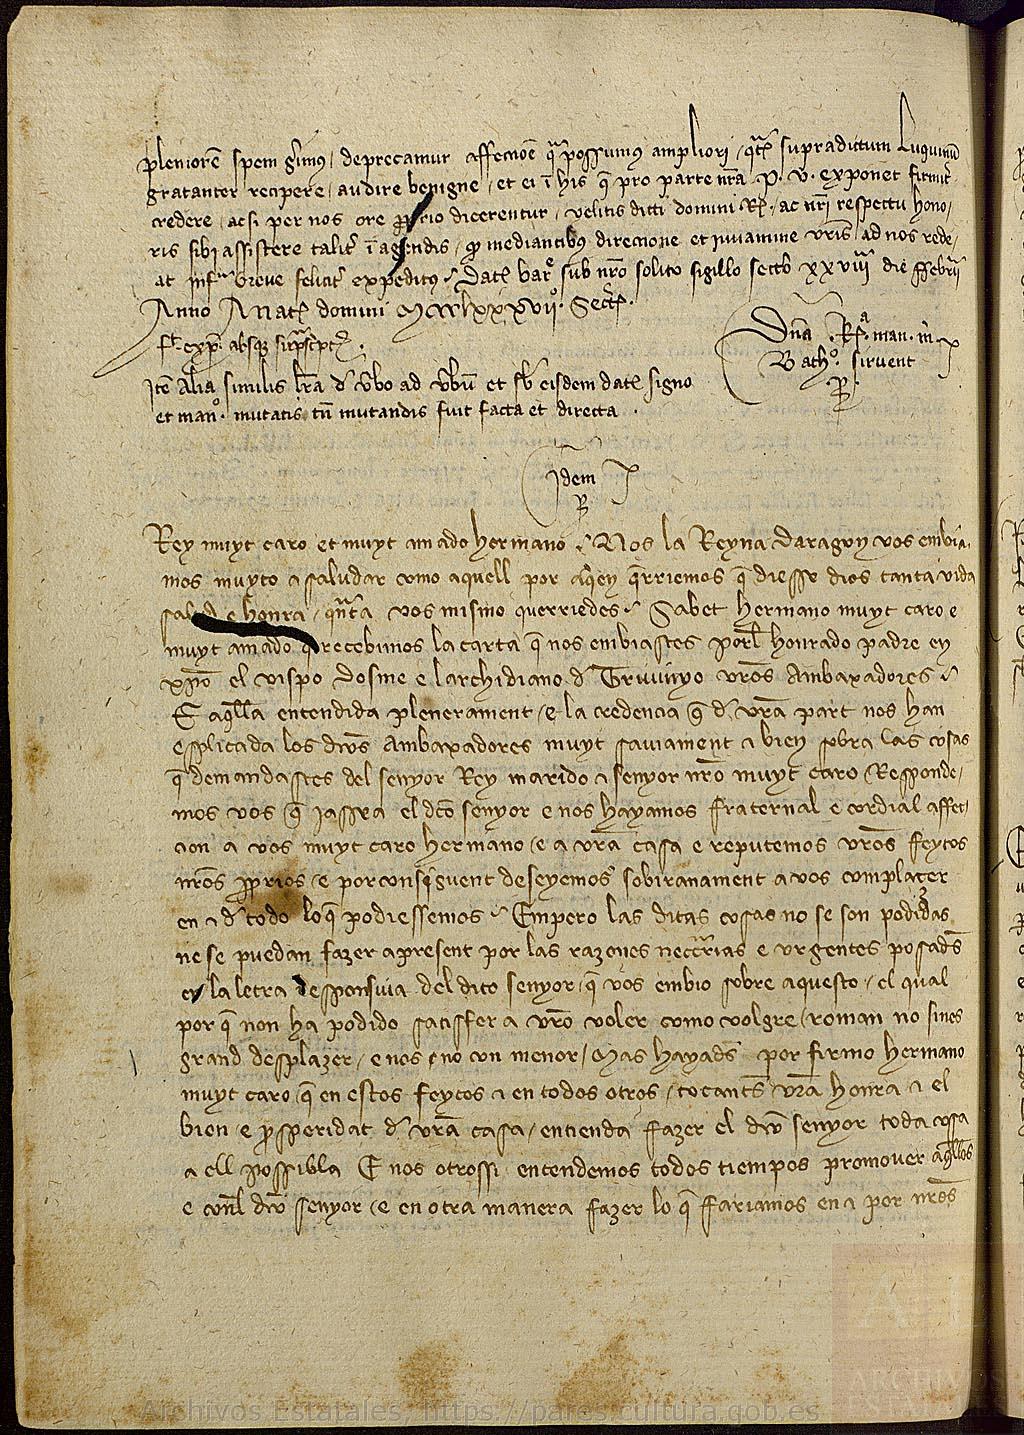 pleniorē spem gerimus, deprecamur affeccioē qua possumus ampliori, qtꝰ supradictum Luguinū
gratanter recipere, audire benigne, et ei ī his q̄ pro parte nrā P. v. exponet firmit̄
credere, acsi per nos ore pprio dicerentur, velitis dicti domini R̄. ac nrī respectu hono-
ris sibi assistere talit̄ ī agendis, qꝰ mediantibꝰ direccione et iuvamine vrīs ad nos rede-
at infra breve felicit̄ expeditꝰ. Dat̄ bar̄e sub nrō solito sigillo sectō xxviii die ffebrii
Anno Anat̄ domini Mccclxxxvii. Secr̄.
absqꝫ
Dnā Ra. man. m.
Bathº. sirvent
P.
Itē Alia similis lrā d̄ v̄bo ad v̄bū et sb̄ eisdem dat̄ signo
et manº. mutatis tn̄ mutandis fuit facta et directa.
Idem
P.
Rey muyt caro et muyt amado hermano. Nos la Reyna Daragon vos embia-
mos muyto a saludar como aquell por aqey q̄rriemos q̄ diesse dios tanta vida
salud e honra, qnta vos mismo querriedes. Sabet hermano muyt caro e
muyt amado q̄ recebimos la carta q̄ nos embiastes porl honrado padre en
xpō el vispo Dosme e larchidiano d̄ Truvinyo vrōs Ambaxadores.
E aq̄lla entendida plenerament, e la credencia q̄ d̄ vrā part nos han
esplicada los dtōs Ambaxadores muyt saviament a bien sobra las cosas
q̄ demandastes del senyor Rey marido a senyor nrō muyt caro Responde-
mos vos q̄ jassea el dtō senyor e nos hayamos fraternal e cordial affec-
cion a vos muyt caro hermano, e a vrā casa e reputemos vrōs feytos
nrōs pprios, e por consiguent deseyemos sobiranament a vos complazer
en a d̄ todo lo q̄ podiessemos. Empero las ditas cosas no se son podidas
ne se puedan fazer a present por las razones neccārias e urgentes posad̄s
en la letra responsiva del dito senyor, q̄ vos embio sobre aquesto, el qual
por q̄ non ha podido satisffer a vrō voler como volgre, roman no sines
grand desplazer, e nos no con menor, Mas hayad̄s por firmo hermano
muyt caro, q̄ en estos feytos a en todos otros, tocant̄s vrā honra a el
bien e psperidat d̄ vrā casa, entienda fazer el dtō senyor toda cosa
a ell possibla E nos otrossi entendemos todos tiempos promover aq̄llos
e conl dtō senyor, e en otra manera fazer lo q̄ fariamos en a por nrōs
Archivos Estatales, https://pares.cultura.gob.es